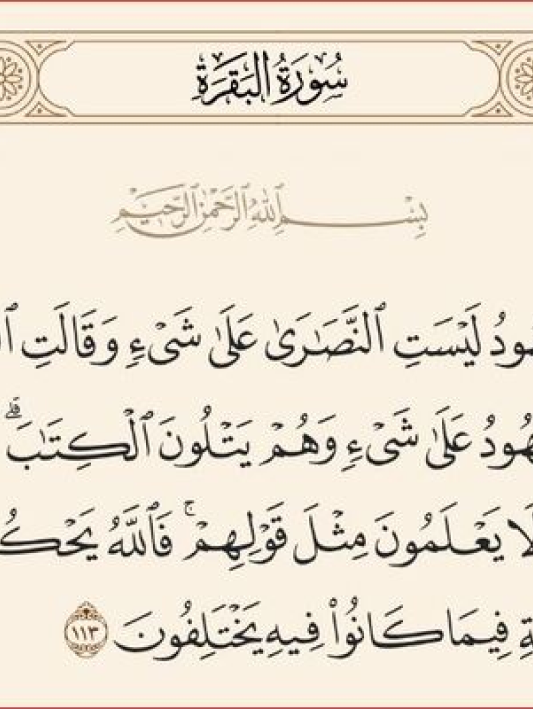 سُورَةُ البَقَرَةِ
بِسْمِ ٱللَّهِ ٱلرَّحْمَٰنِ ٱلرَّحِيمِ
لَيْسَتِ ٱلنَّصَٰرَىٰ عَلَىٰ شَىْءٍ وَقَالَتِ
عَلَىٰ شَىْءٍ وَهُمْ يَتْلُونَ ٱلْكِتَٰبَ ۗ
لَا يَعْلَمُونَ مِثْلَ قَوْلِهِمْ ۚ فَٱللَّهُ
فِيمَا كَانُوا۟ فِيهِ يَخْتَلِفُونَ ١١٣